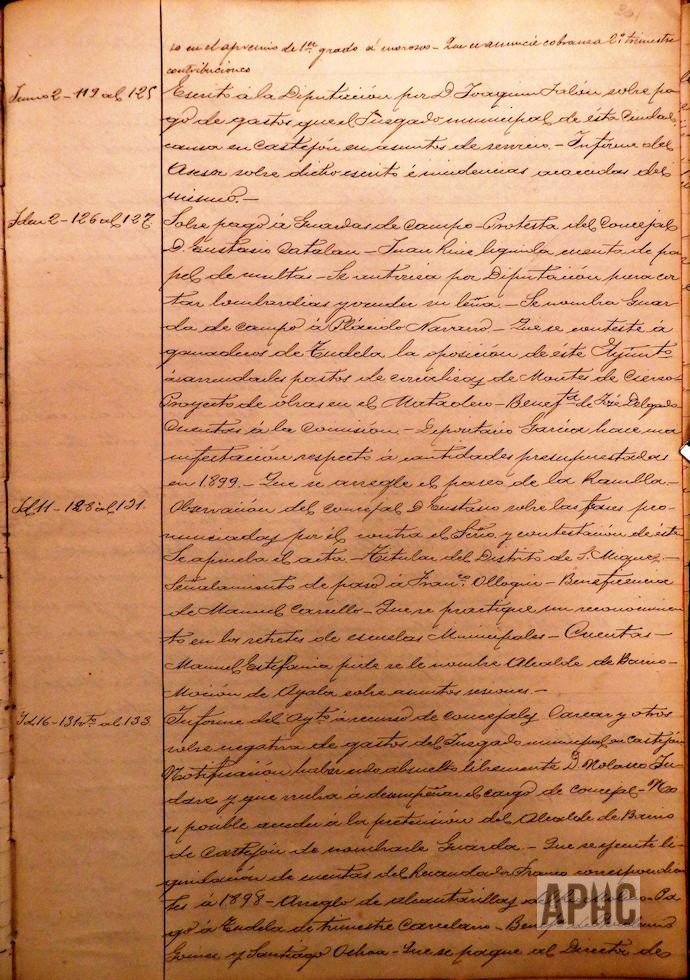 so en el apremio de 1er grado á morosos - Que se anuncie cobranza 2º trimestre
contribuciones
Junio 2 - 119 al 125 Escrito á la Diputación por D. Joaquin Falón sobre pa
go de gastos que el Juzgado municipal de ésta Ciudad
causa en Castejón en asuntos de servicio. - Informe del
Asesor sobre dicho escrito é incidencias acaecidas del
mismo. -
Iden 2 - 126 al 127 Sobre pago á Guardas de campo - Protesta del Concejal
D. Eustasio Catalan - Juan liquida cuenta de pa
pel de multas - Se autoriza por Diputación para cor
tar lombardias y vender su leña. - Se nombra Guar
da de campo á Plácido Navarro - Que se conteste á
ganaderos de Tudela la oposición de éste Ayunto
á arrendarles pastos de corralizas de Montes de Cierzo
Proyecto de obras en el Matadero - Benefca de José Delgado
Cuentas á la Comisión. - Depositario García hace ma
nifestación respecto á cantidades presupuestadas
en 1899 - Que se arregle el paseo de la Ramilla. -
Id 11 - 128 al 131. Observación del concejal D. Eustasio sobre las frases pro
nunciadas por él contra el Srio y contestación de éste
Se aprueba el acta - Titular del Distrito de S. Miguel -
Señalamiento de paso á Franco Olloqui - Beneficencia
de Manuel Carcello - Que se practique un reconocimien
to en los retretes de escuelas Municipales - Cuentas -
Manuel Estefania pide se le nombre Alcalde de Barrio -
Moción de Ayala sobre asuntos sesiones. -
Id 16 - 131 vto al 133 Informe del Ayto á recurso de concejales Carcar y otros
sobre negativa de gastos del Juzgado municipal en Castejón
Notificación habiendo absuelto libremente D. Nolasco
y que vuelva á desempeñar el cargo de concejal - No
es posible acceder á la pretensión del Alcalde de Barrio
de Castejón de nombrarle Guarda - Que se ejecute li
quidación de cuentas del Recaudador Franco correspondien
tes á 1898 - Arreglo de alcantarillas - Pa
go á Tudela de trimestre Carcelario -
y Santiago Ochoa - Que se pague al Director de
APHC